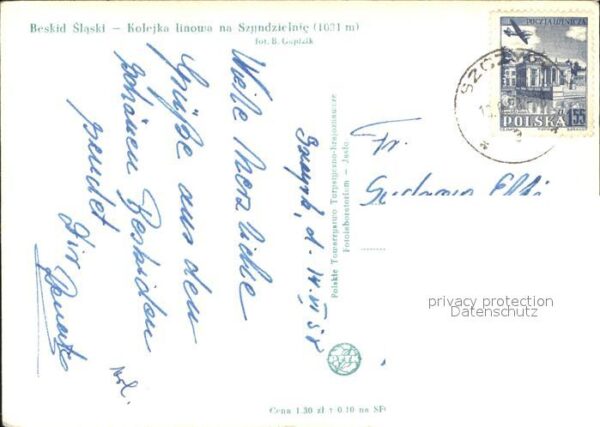 Beskid Śląski – Kolejka linowa na Szyndzielnię (1021 m)
fot. B. Gajdzik
POCZTA LOTNICZA
zł 1,55
POLSKA
SZCZ
Viele herzliche
Grüße aus den
schönen Beskiden
sendet
Dir
d. 14.VI 58
Fr.
Polskie Towarzystwo Turystyczno-krajoznawcze
Fotolaboratorium – Jasło
privacy protection
Datenschutz
Cena 1.30 zł + 0.10 na SF